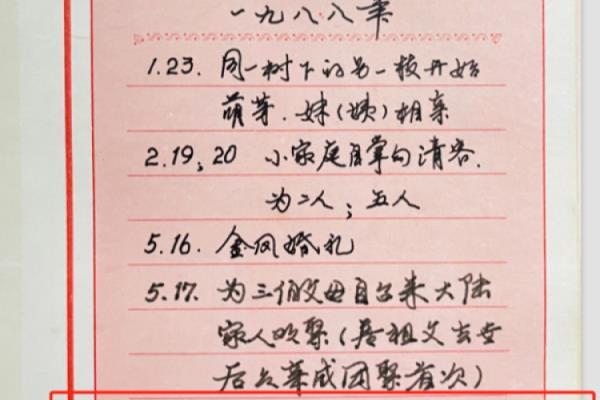 一九八八年
1.23. 同一树下的另一枝开始
萌芽.妹(姨)相亲
2.19;20 小家庭自掌勺请客.
为二人;五人
5.16. 金凤婚礼
5.17. 为三伯父母自台来大陆
家人欢聚(吾祖父去世
后六第成团聚首次)